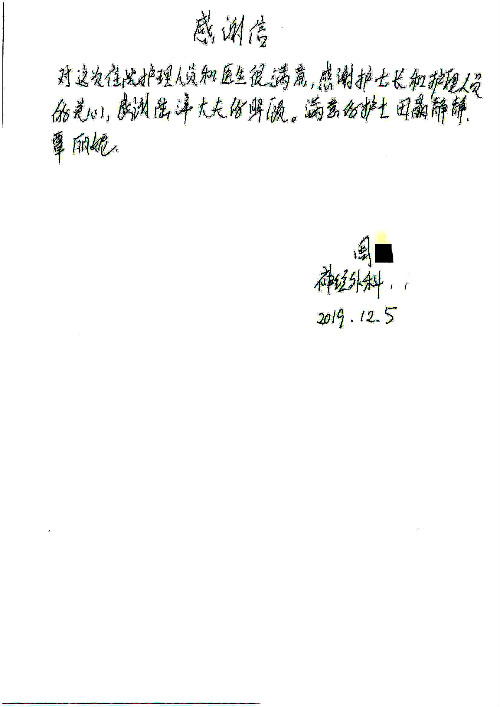 感谢信
对这次住院护理人员和医生很满意,感谢护士长和护理人员
的关心,感谢陆洋大夫的照顾。满意的护士田静静,
覃丽妮。
周
神经外科
2019.12.5